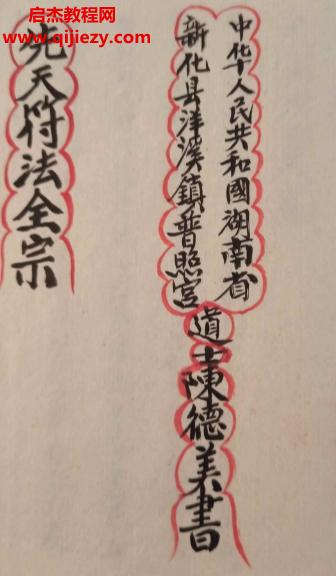 启杰教程网
www.qijiezy.com
中华人民共和國湖南省
新化县洋溪鎮普照宮
道士陳德美書
先天符法全宗